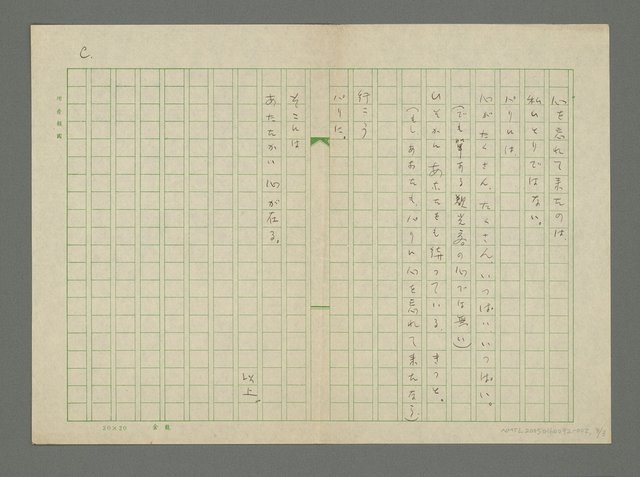 心を忘れて来たのは
私ひとりではない。
パリには、
心がたくさん、たくさん、いっぱいいっぱい。
(でも単なる観光客の心では無い)
ひそかに あなたをも待っている。きっと。
(もしあなたも、パリに心を忘れて来たなら。)
行こう
パリに。
そこには
あたたかい心が在る。
以上。
C.
20×20 金龍
NMTL20050160092-002, 3/3